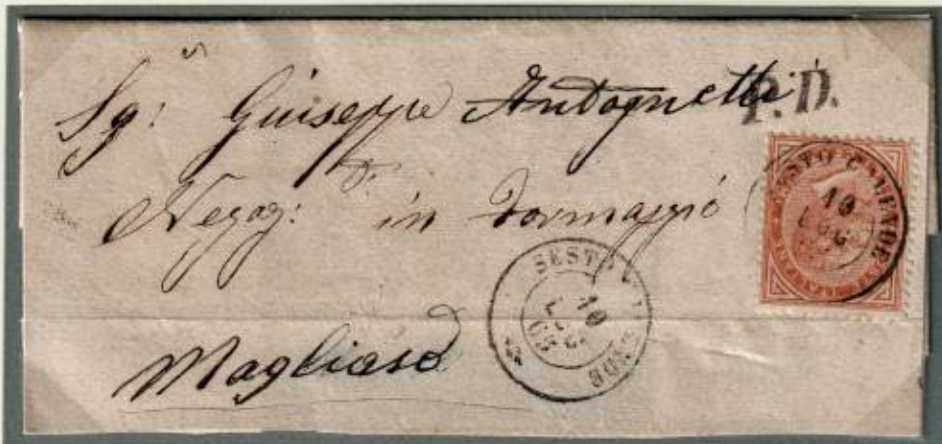 Sg: Giuseppe Antognetti
P.D.
Negoz: in Formaggio
SESTO CALENDE
10
LUG
SESTO CALENDE
10
LUG
65
Magliaso